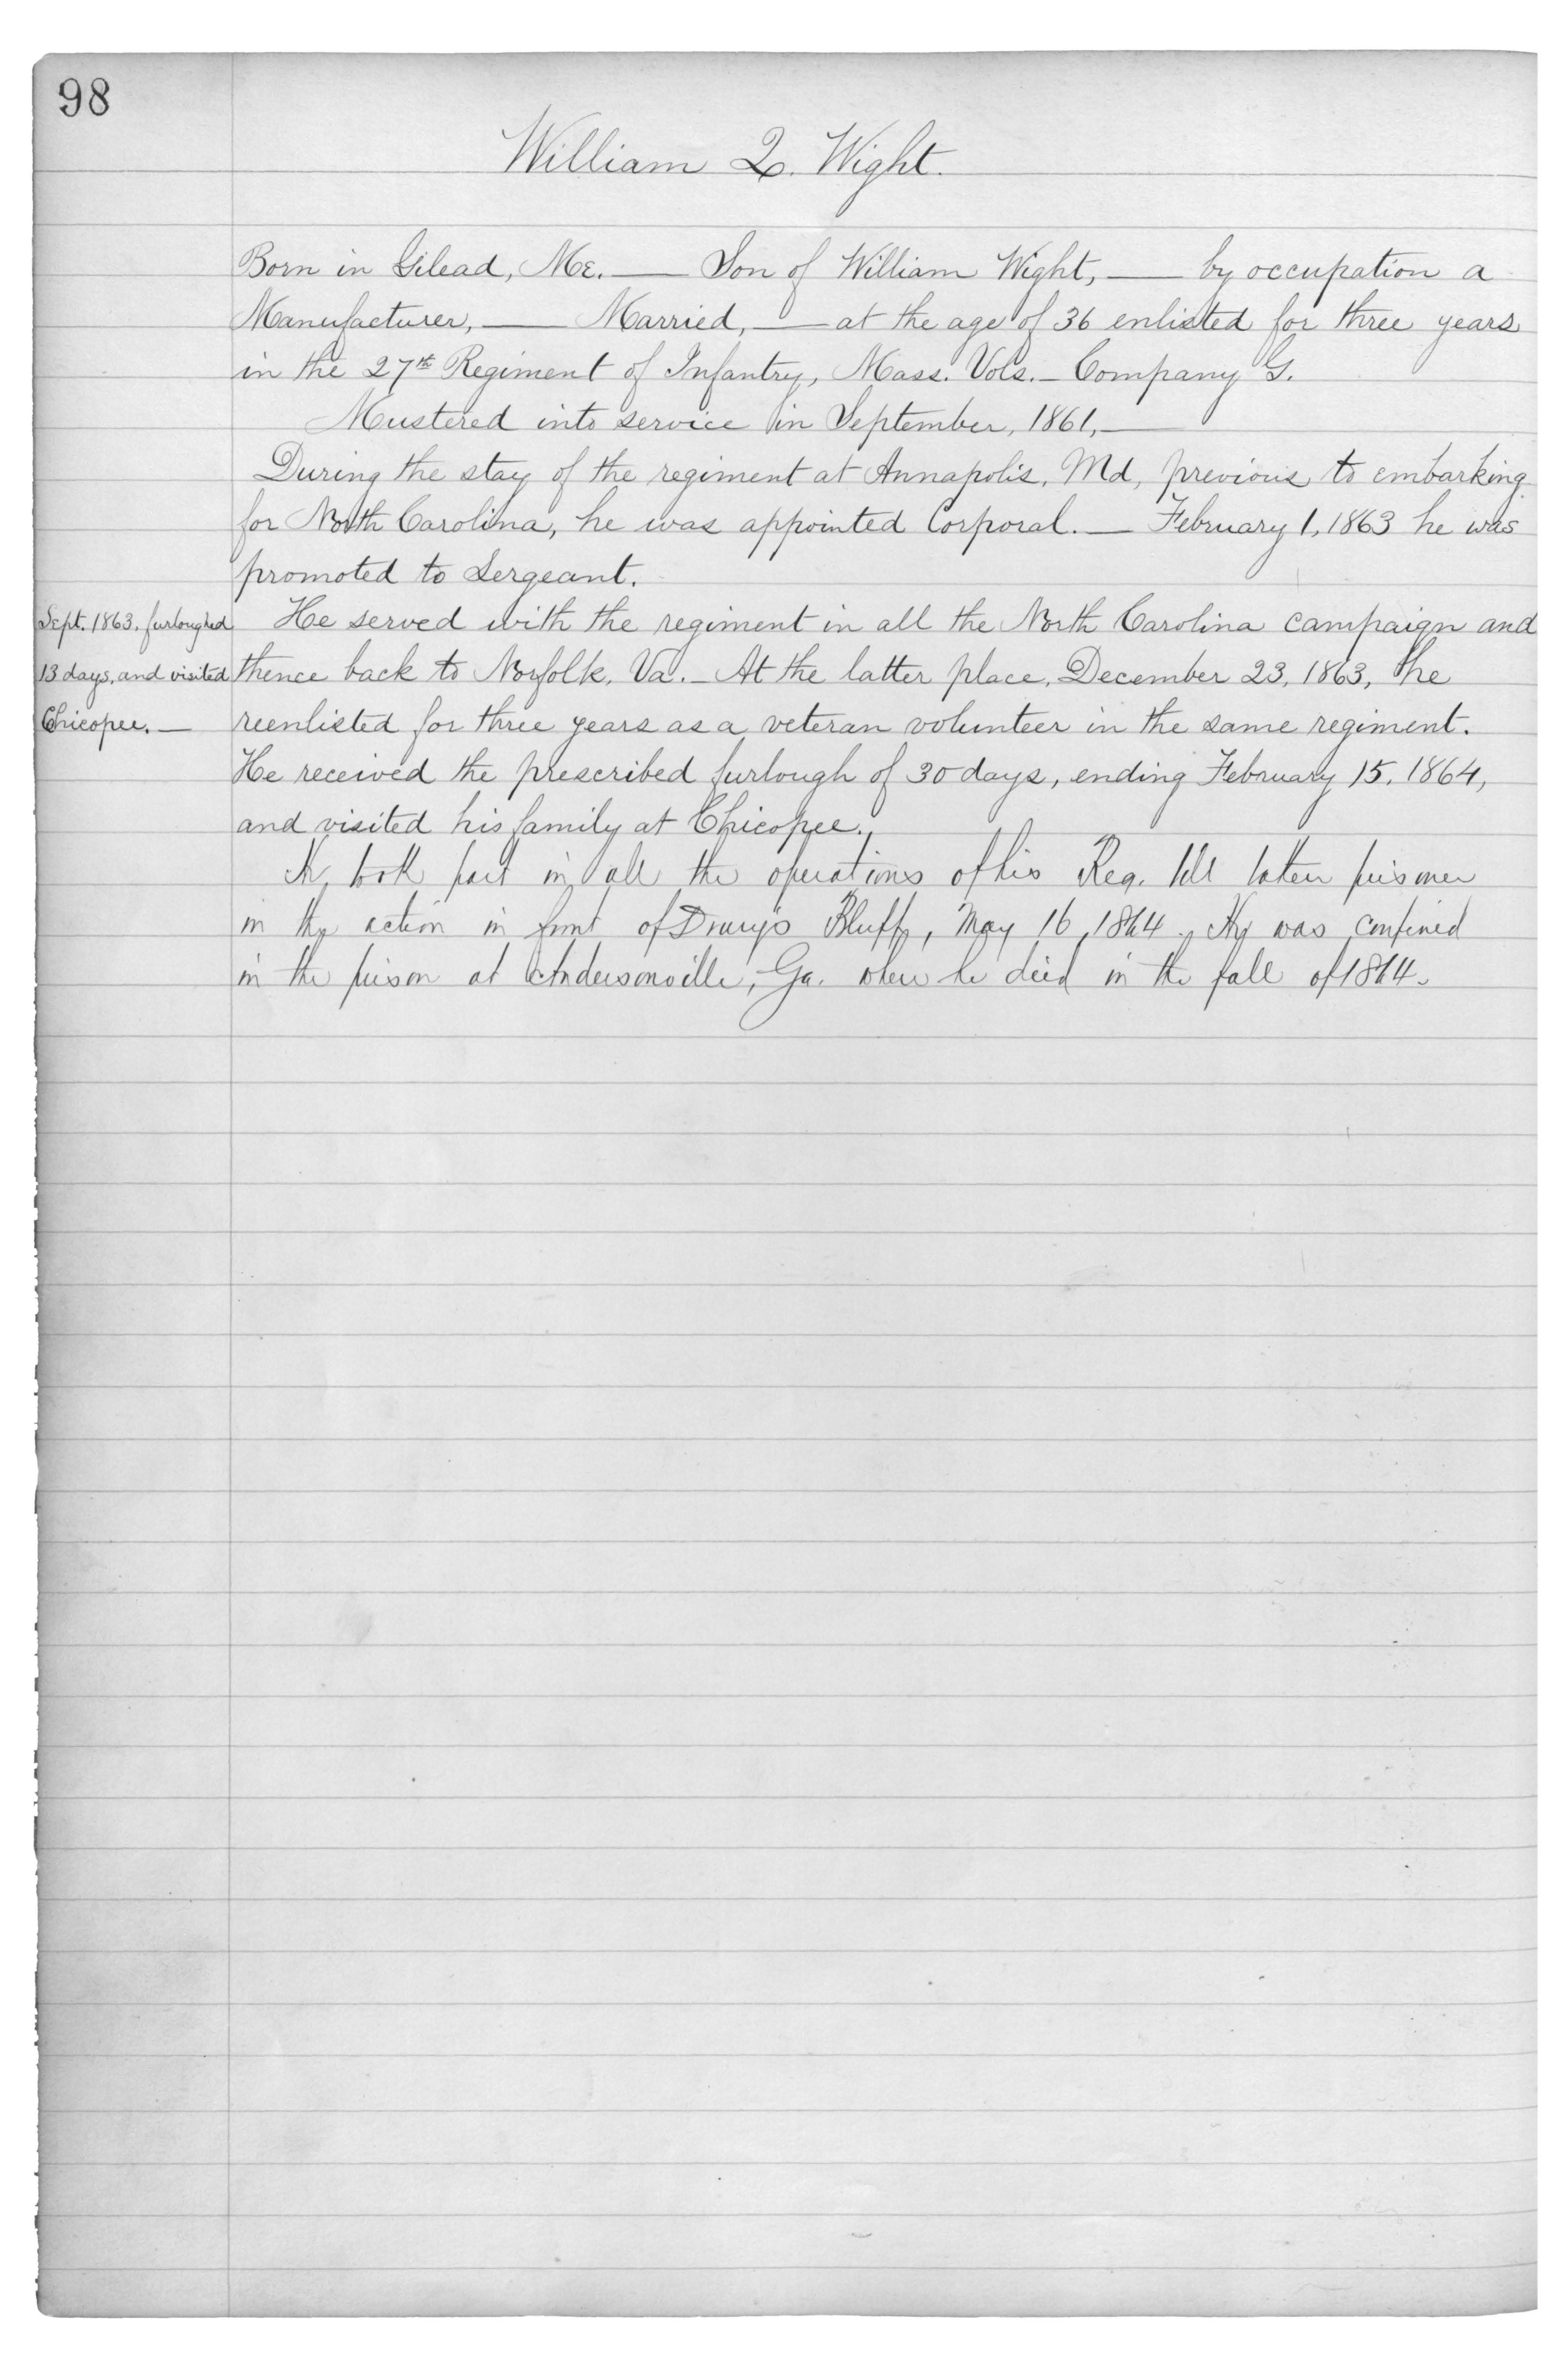 98
William Q. Wight.
Born in Gilead, Me. — Son of William Wight, — by occupation a
Manufacturer, — Married, — at the age of 36 enlisted for three years
in the 27th Regiment of Infantry, Mass. Vols. – Company G.
Mustered into service in September, 1861, —
During the stay of the regiment at Annapolis, Md, previous to embarking
for North Carolina, he was appointed Corporal. — February 1, 1863 he was
promoted to Sergeant.
Sept. 1863. furloughed
13 days, and visited
Chicopee. —
He served with the regiment in all the North Carolina campaign and
thence back to Norfolk, Va. – At the latter place, December 23, 1863, he
reenlisted for three years as a veteran volunteer in the same regiment.
He received the prescribed furlough of 30 days, ending February 15, 1864,
and visited his family at Chicopee.
He took part in all the operations of his Reg. till taken prisoner
in the action in front of Drury's Bluff, May 16, 1864. He was confined
in the prison at Andersonville, Ga. where he died in the fall of 1864.